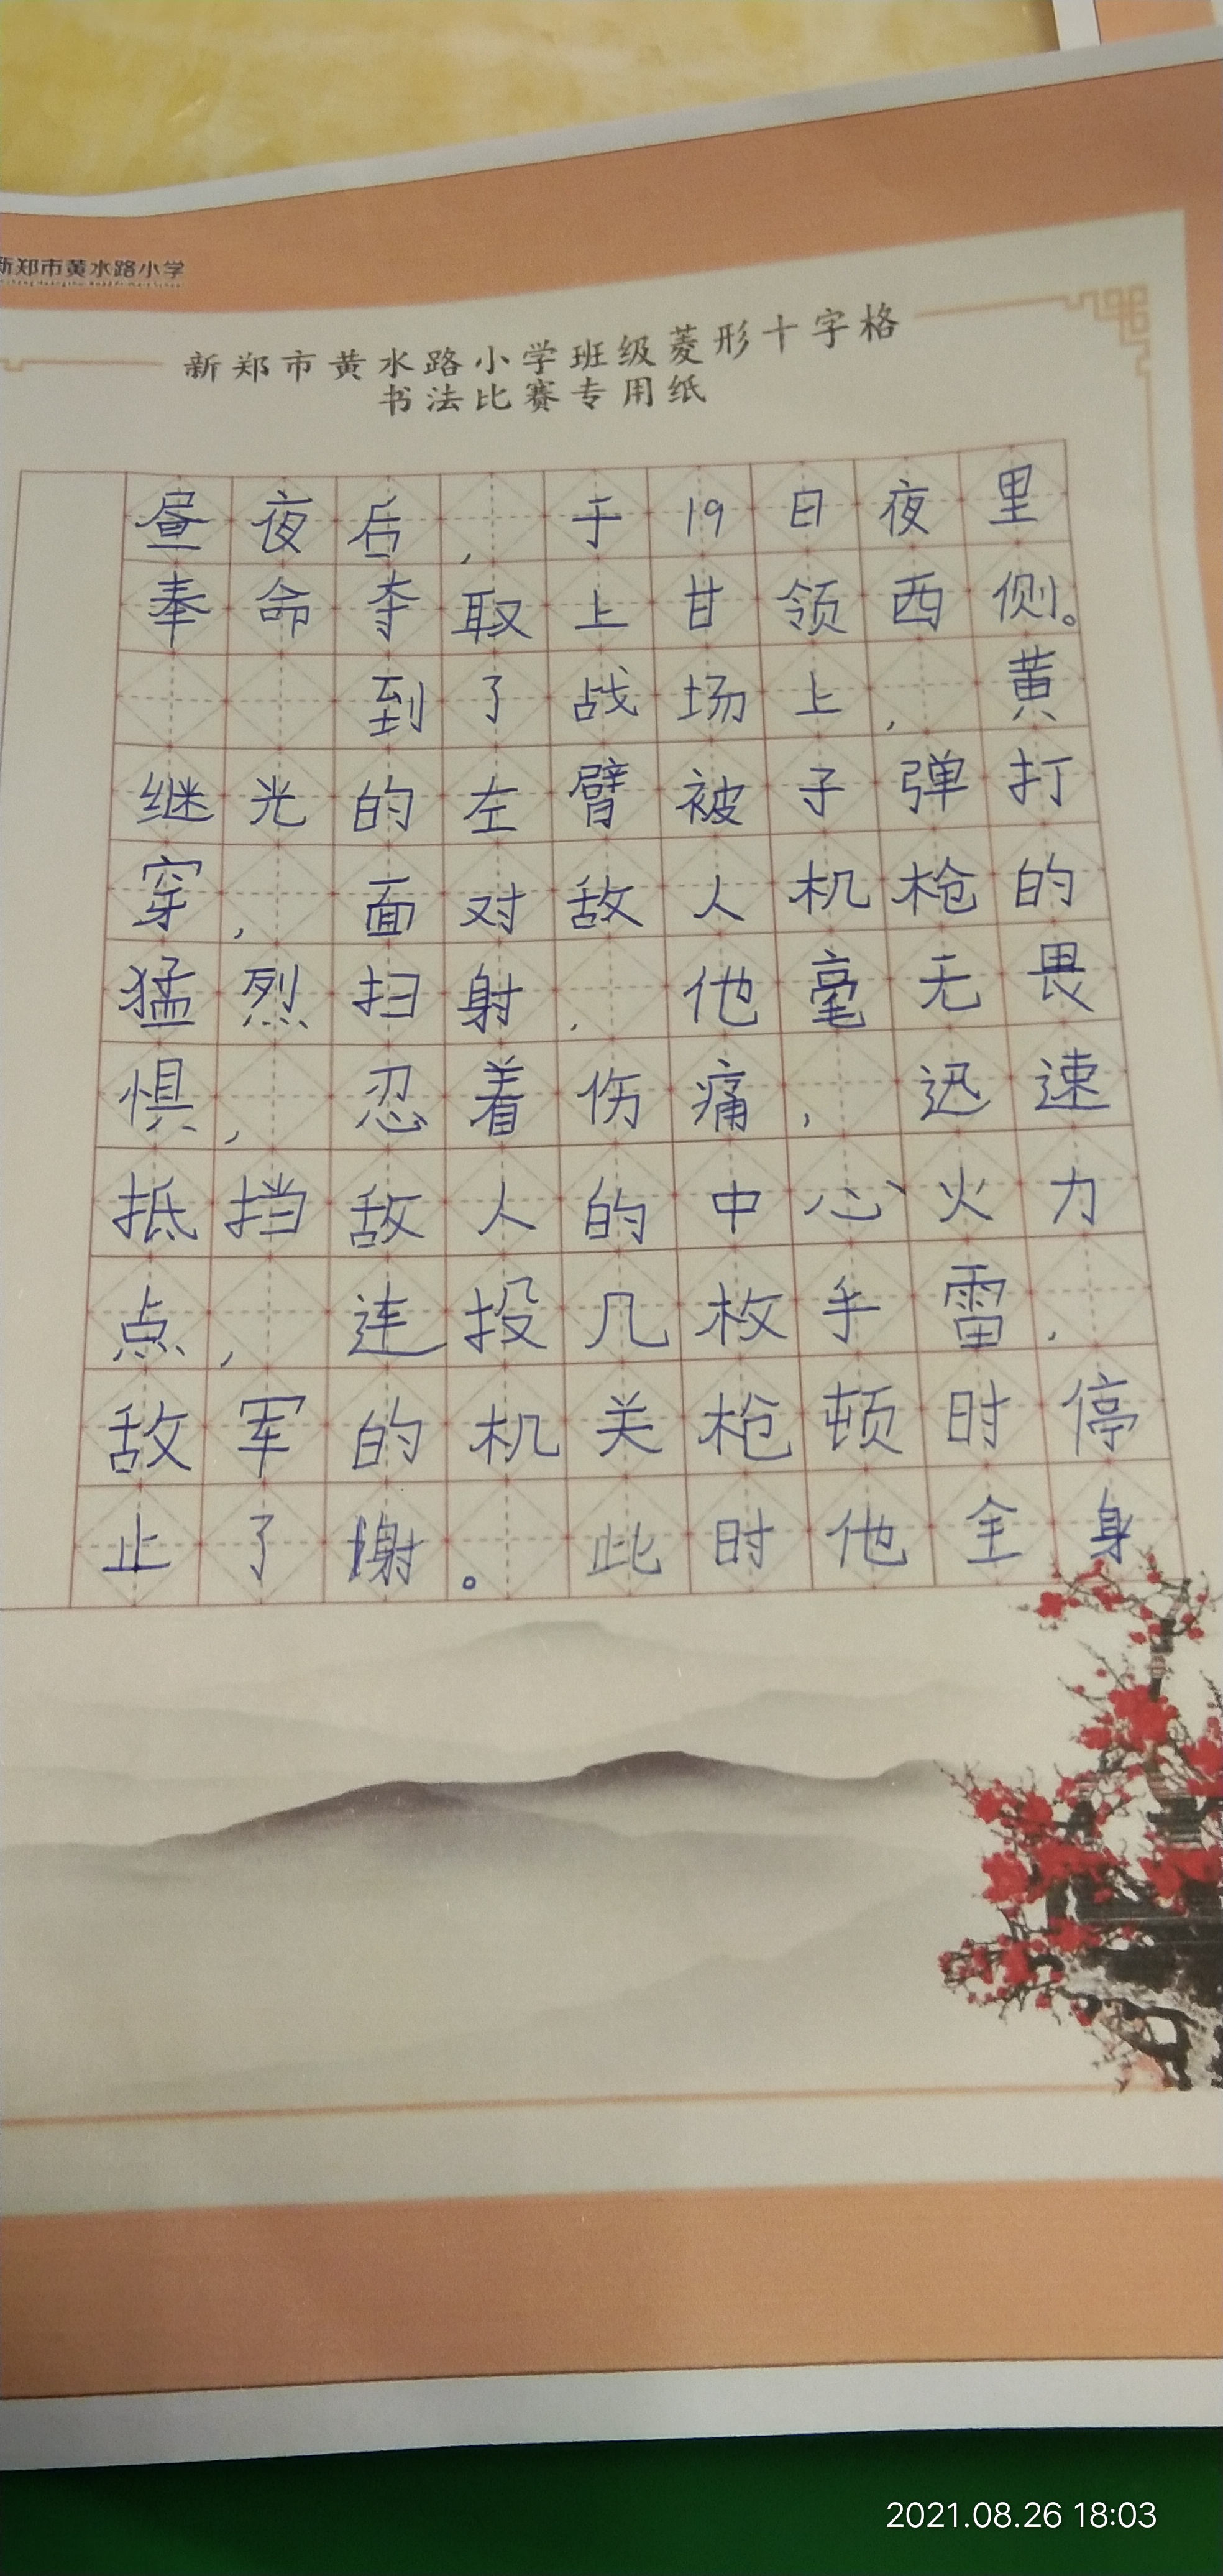 新郑市黄水路小学
新郑市黄水路小学班级菱形十字格
书法比赛专用纸
昼夜后，于19日夜里
奉命夺取上甘领西侧。
到了战场上，黄
继光的左臂被子弹打
穿，面对敌人机枪的
猛烈扫射，他毫无畏
惧，忍着伤痛，迅速
抵挡敌人的中心火力
点，连投几枚手雷，
敌军的机关枪顿时停
止了谢。此时他全身
2021.08.26 18:03